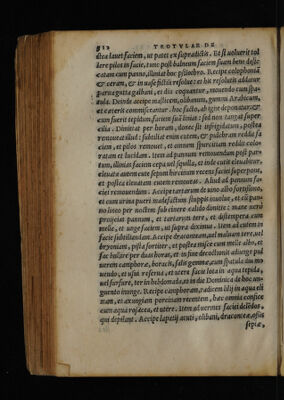 TROTVLAE DE
stea lauet faciem, ut patet ex supradictis. Et si uoluerit tol
lere pilos in facie, tunc post balneum faciem suam bene desic
catam cum panno, illiniat hoc psilothro. Recipe colophoniæ
& ceram, & in uase fictili resolue: et his resolutis addatur
parua gutta galbani, et diu coquantur, mouendo cum spa-
tula. Deinde accipe mastichem, olibanum, gummi Arabicum,
et cæteris commisceantur. hoc facto, ab igne deponatur, &
cum fuerit tepidum faciem suā liniat: sed non tangat super
cilia. Dimittat per horam, donec sit infrigidatum, postea
remoueat illud: subtiliat enim cutem, & pulchram reddit fa
ciem, et pilos remouet, et omnem spurcitiam reddit colo-
ratam et lucidam. Item ad pannum remouendum post par-
tum, illinias faciem et
uentur autem cum
et postea eleuatam cutem remoueas. Aliud ad pannum fa-
ciei remouendum. Accipe tartarum de uino albo fortissimo,
et cum urina pueri in uase
no lineo per noctem sub cinere calido dimitte: mane uerò
projicias pannum, et tartarum tere, et distempera cum
melle, et unge faciem, ut supra diximus. Item ad cutem in
facie subtiliandam. Accipe draconteam, uel
bryoniam, pista fortiter, et postea misce cum melle albo, et
fac bullire per duas horas, et in fine decoctionis adiunge pul
uerem camphoræ, boracis, salis gemmæ, cum spatula diu mo
uendo, et usui reserua, et utere facie lota in aqua tepida,
uel furfure, ter in hebdomada, et in die Dominica de hoc un-
guento inunge. Recipe camphoram, radicem lilij in aqua eli
xam, et axungiam porcinam recentem, hæc omnia confice
cum aqua rosacea, et utere. Item
qui depilant. Accipe lapatij acuti, olibani, draconteæ,
sepiæ,